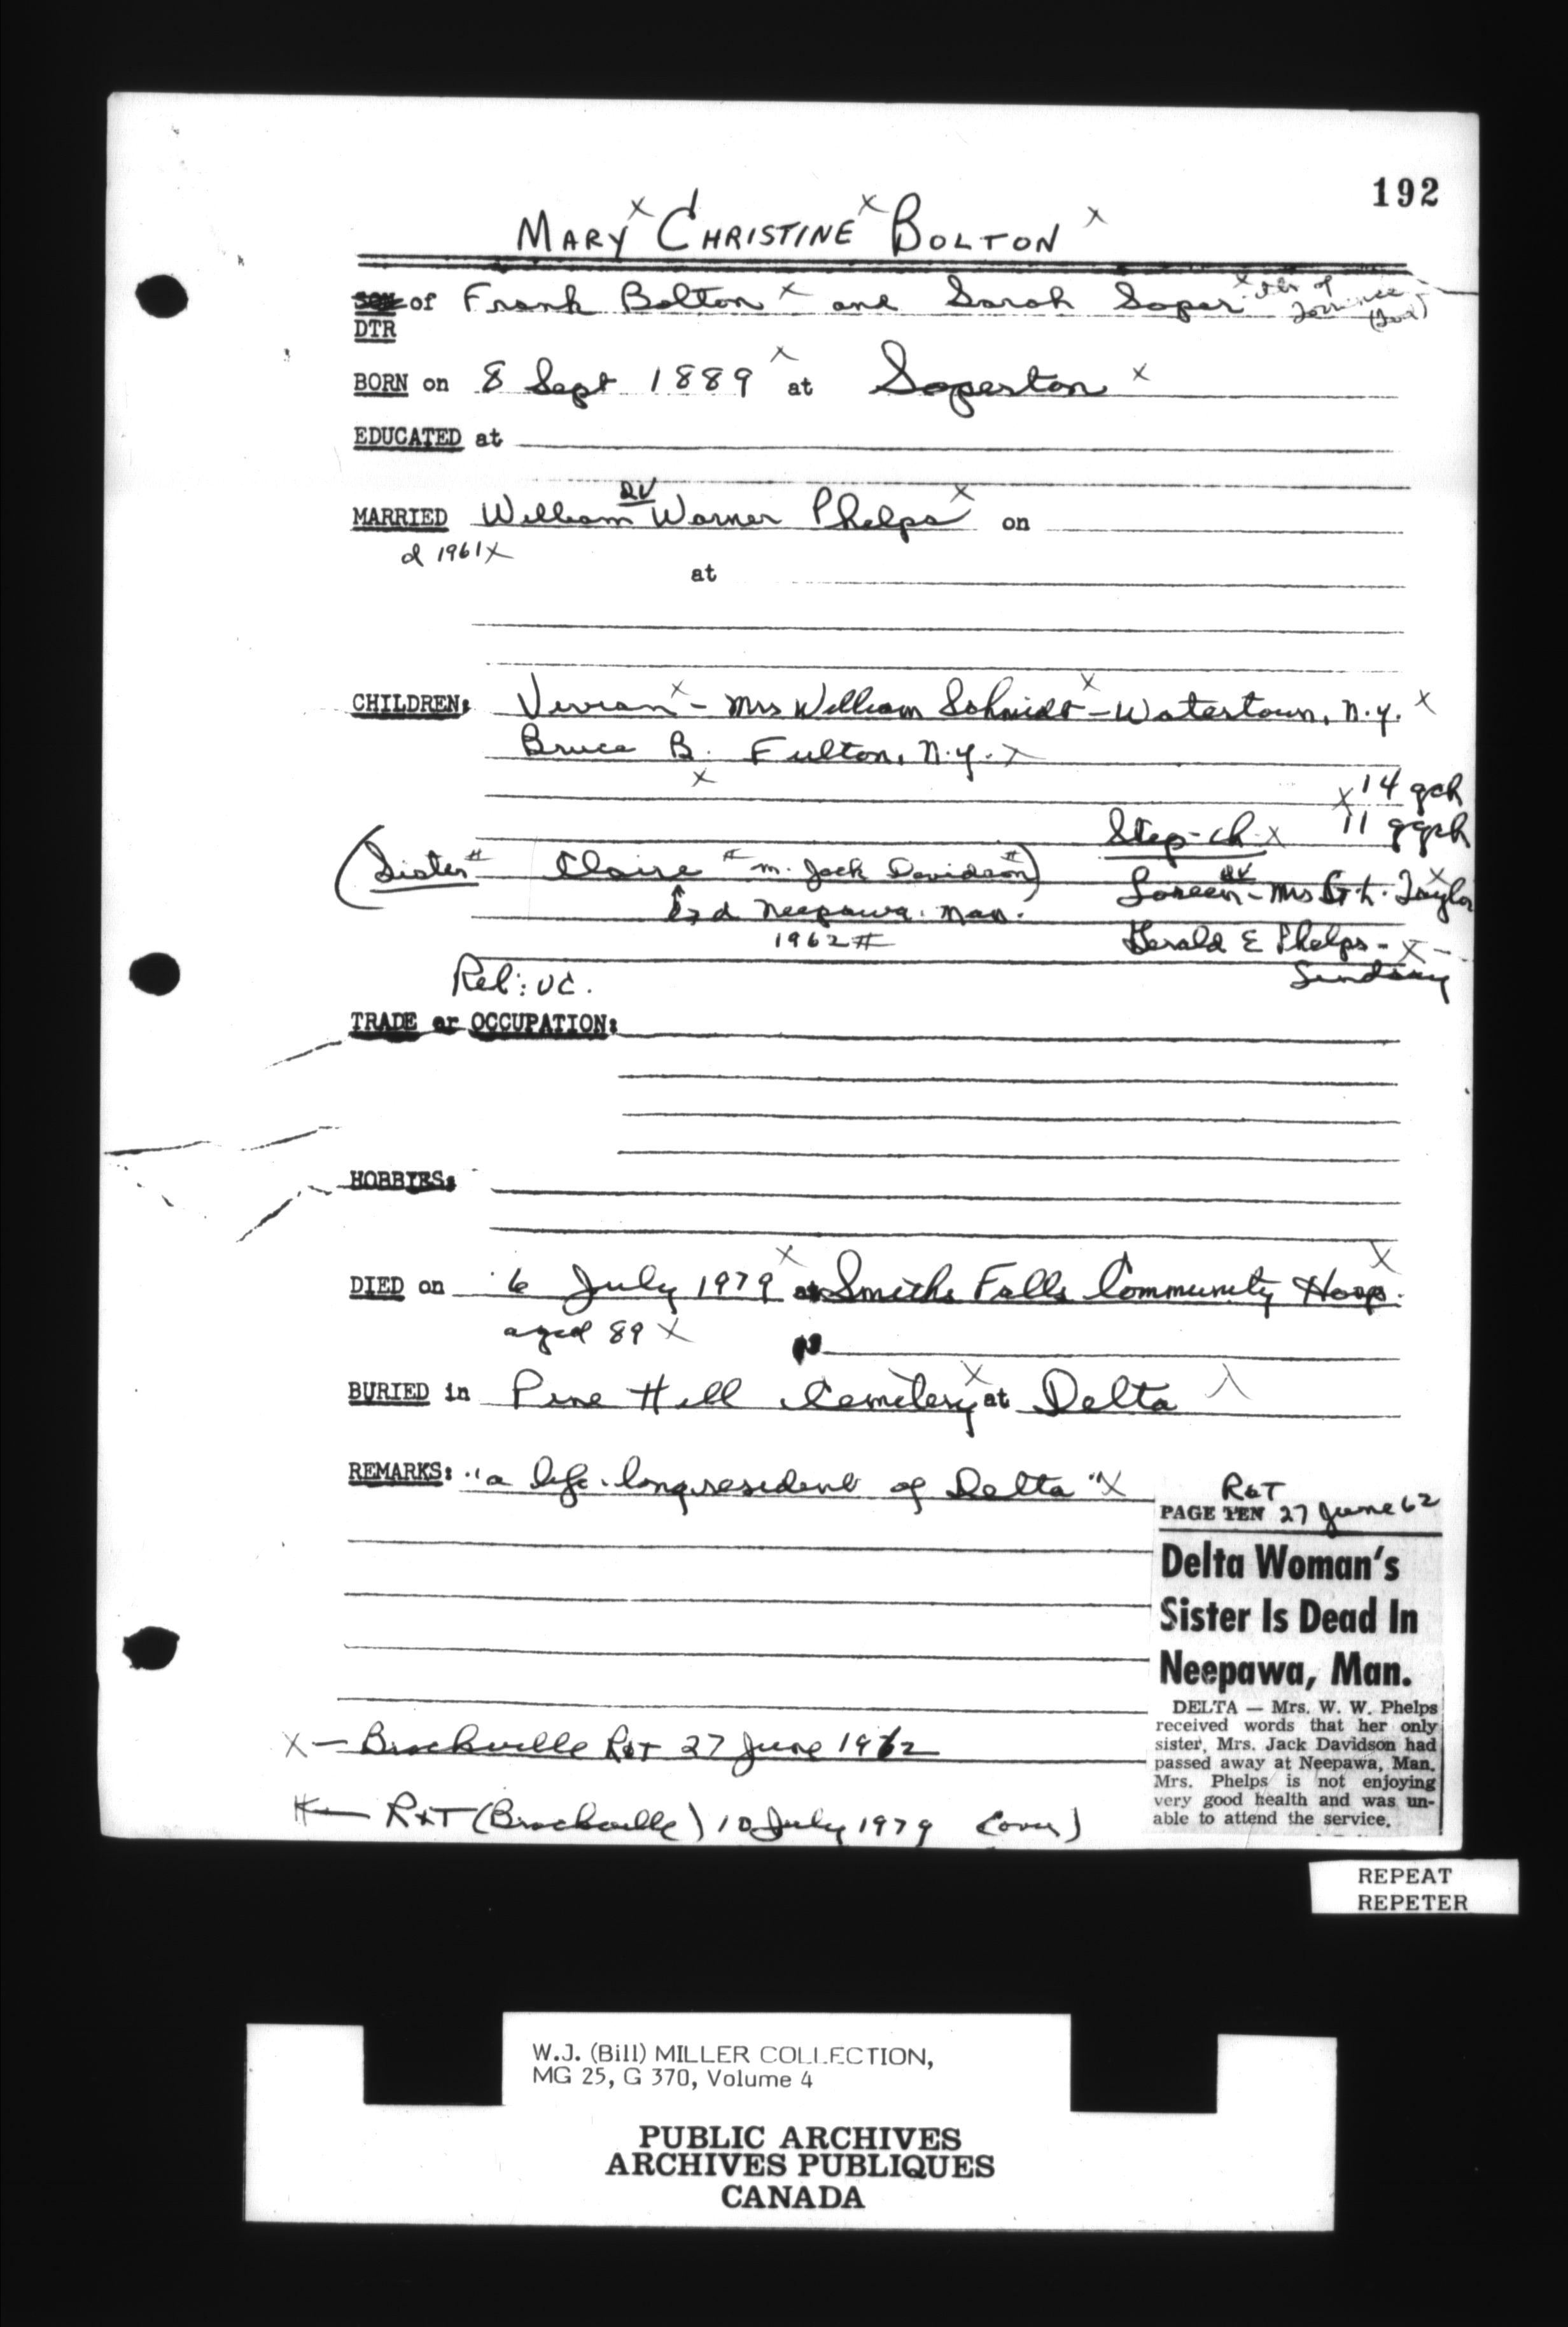 192
MARY CHRISTINE BOLTON
SON of Frank Bolton x and Sarah Soper x
DTR
BORN on 8 Sept 1889 x at Soperton x
EDUCATED at
QV
MARRIED William Warner Phelps x on
d 1961 x
at
CHILDREN: Vivian x - Mrs William Schmidt x - Watertown, N.Y. x
Bruce B. Fulton, N.Y. x
x 14 gch
11 ggch
Step-ch x
(Sister # Claire # m. Jack Davidson #)
d Neepawa. Man.
1962 #
QV
Loreen - Mrs L. Taylor
Gerald E Phelps - x -
Lindsay
Rel: UC.
TRADE or OCCUPATION:
HOBBIES:
DIED on 6 July 1979 x at Smiths Falls Community Hosp. x
aged 89 x
BURIED in Pine Hill Cemetery x at Delta x
REMARKS: "a life-long resident of Delta" x
R&T
PAGE TEN 27 June 62
Delta Woman's
Sister Is Dead In
Neepawa, Man.
DELTA — Mrs. W. W. Phelps
received words that her only
sister, Mrs. Jack Davidson had
passed away at Neepawa, Man.
Mrs. Phelps is not enjoying
very good health and was un-
able to attend the service.
x — Brockville R&T 27 June 1962
# — R&T (Brockville) 10 July 1979 (over)
REPEAT
REPETER
W.J. (Bill) MILLER COLLECTION,
MG 25, G 370, Volume 4
PUBLIC ARCHIVES
ARCHIVES PUBLIQUES
CANADA